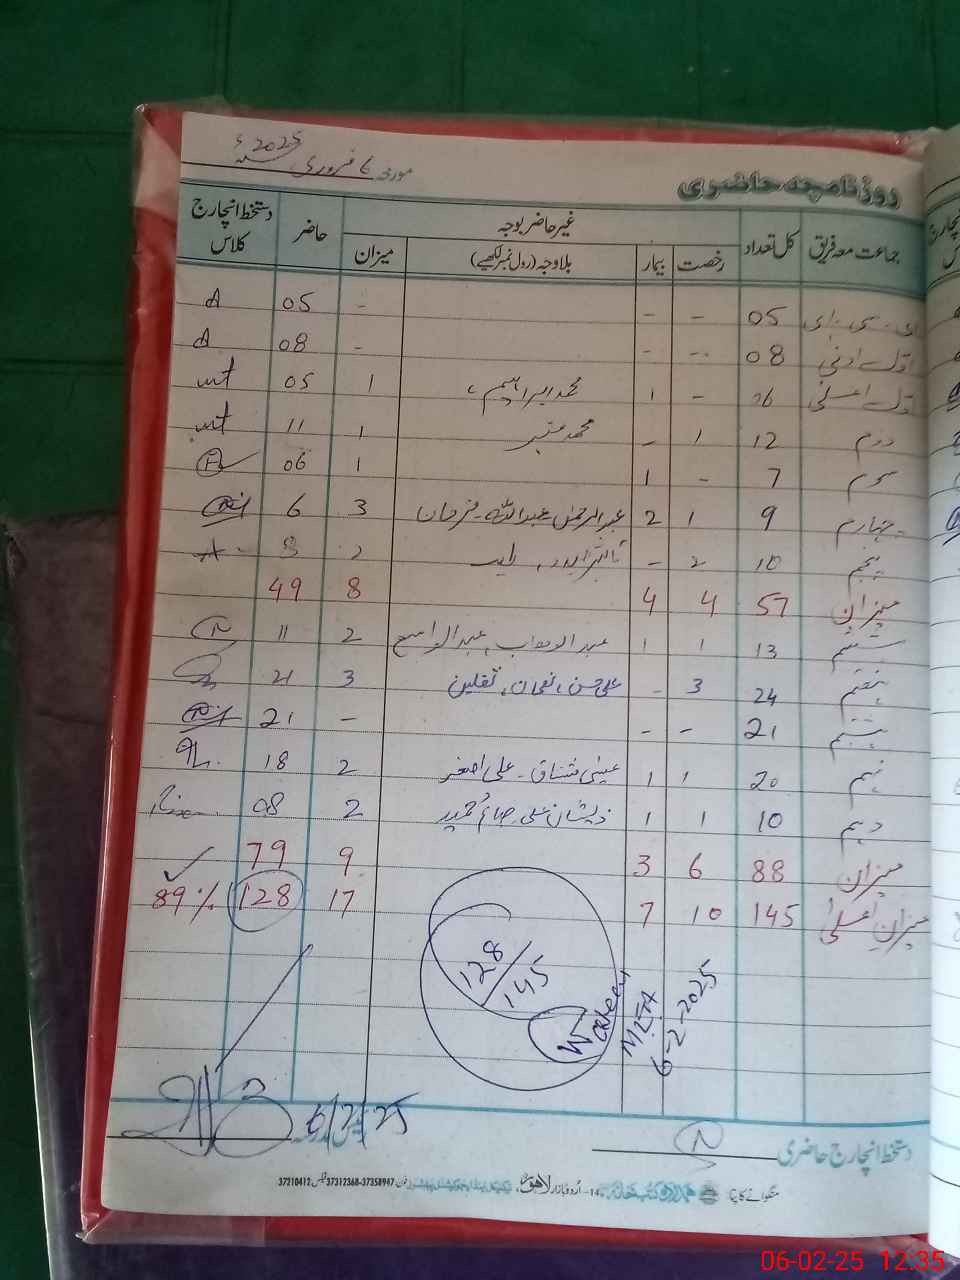 مورخہ 6 فروری 2025ء
روزنامچہ حاضری
جماعت معہ فریق کل تعداد غیر حاضر بوجہ حاضر دستخط انچارج کلاس
رخصت بیمار بلاوجہ (رول نمبر لکھیے) میزان
ای۔سی۔ای 05 - - - 05
اول ادنیٰ 08 - - - 08
اول اعلیٰ 06 - 1 محمد ابراہیم، 1 05
دوم 12 1 - محمد 1 11
سوم 7 - 1 1 06
چہارم 9 1 2 عبدالرحمٰن۔عبداللہ۔فرحان 3 6
پنجم 10 2 - 2 8
میزان 57 4 4 8 49
ششم 13 1 1 عبدالوھاب، عبدالواسع 2 11
ہفتم 24 3 - علی حسن، نعمان، ثقلین 3 21
ہشتم 21 - - - 21
نہم 20 1 1 عیسیٰ مشتاق۔ علی اصغر 2 18
دہم 10 1 1 ذیشان علی 2 08
میزان 88 6 3 9 79
میزان اعلیٰ 145 10 7 17 128 89%
128/145
MEA
6-2-2025
6/2/25
دستخط انچارج حاضری
منگوانے کا پتا 14-اُردو بازار لاہور، فون: 37358947-37312368 فیکس: 37210412
06-02-25 12:35